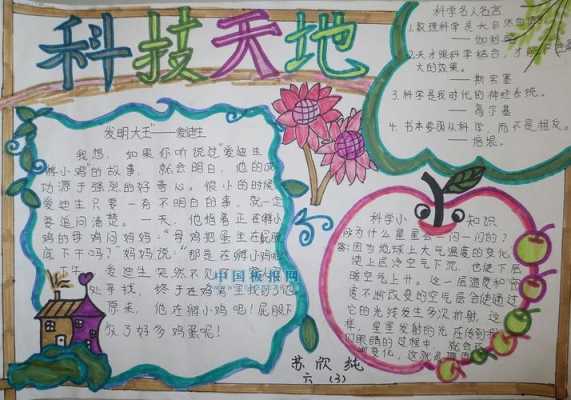 科技天地
发明大王"——爱迪生
我想，如果你听说过"爱迪生
孵小鸡"的故事，就会明白，他的成
功源于强烈的好奇心。很小的时候
爱迪生只要一有不明白的事，就一定
要追问清楚。一天，他指着正在孵小
鸡的母鸡问妈妈："母鸡把蛋坐在屁股
底下干吗？"妈妈说："那是在孵小鸡
爱迪生突然不见
处寻找，终于在鸡窝里找到了他
原来，他在孵小鸡呢！屁股下
放了好多鸡蛋呢！
中国板报网
科学名人名言
1.数理科学是大自然
——伽利略
2.天才跟科学结合，才能
大的效果。
——斯宾塞
3.科学是我时代的神经系统。
——高尔基
4.书本要跟从科学，而不是相反。
——培根。
科学小知识
问为什么星星会一闪一闪的？
答：因为地球上大气温度的变化
使上层冷空气下沉，也使下层
暖空气上升。这一层温度和密
度不断改变的空气层会使通过
它的光线发生多次折射，这
样，星星发射的光在传到
们眼睛的过程中，就会
变化，这就
苏欣纯
六（3）